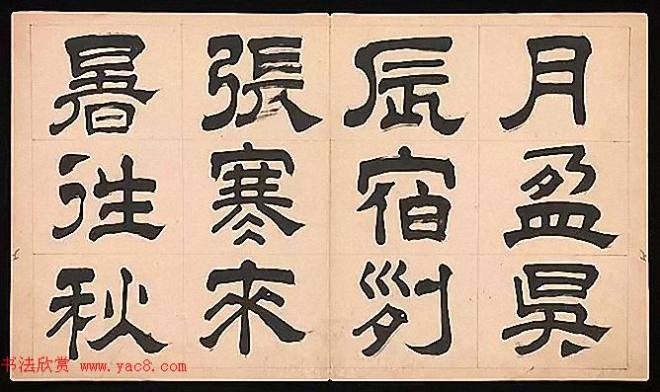 月盈昃
辰宿列
張寒來
暑往秋
书法欣赏 www.yac8.com